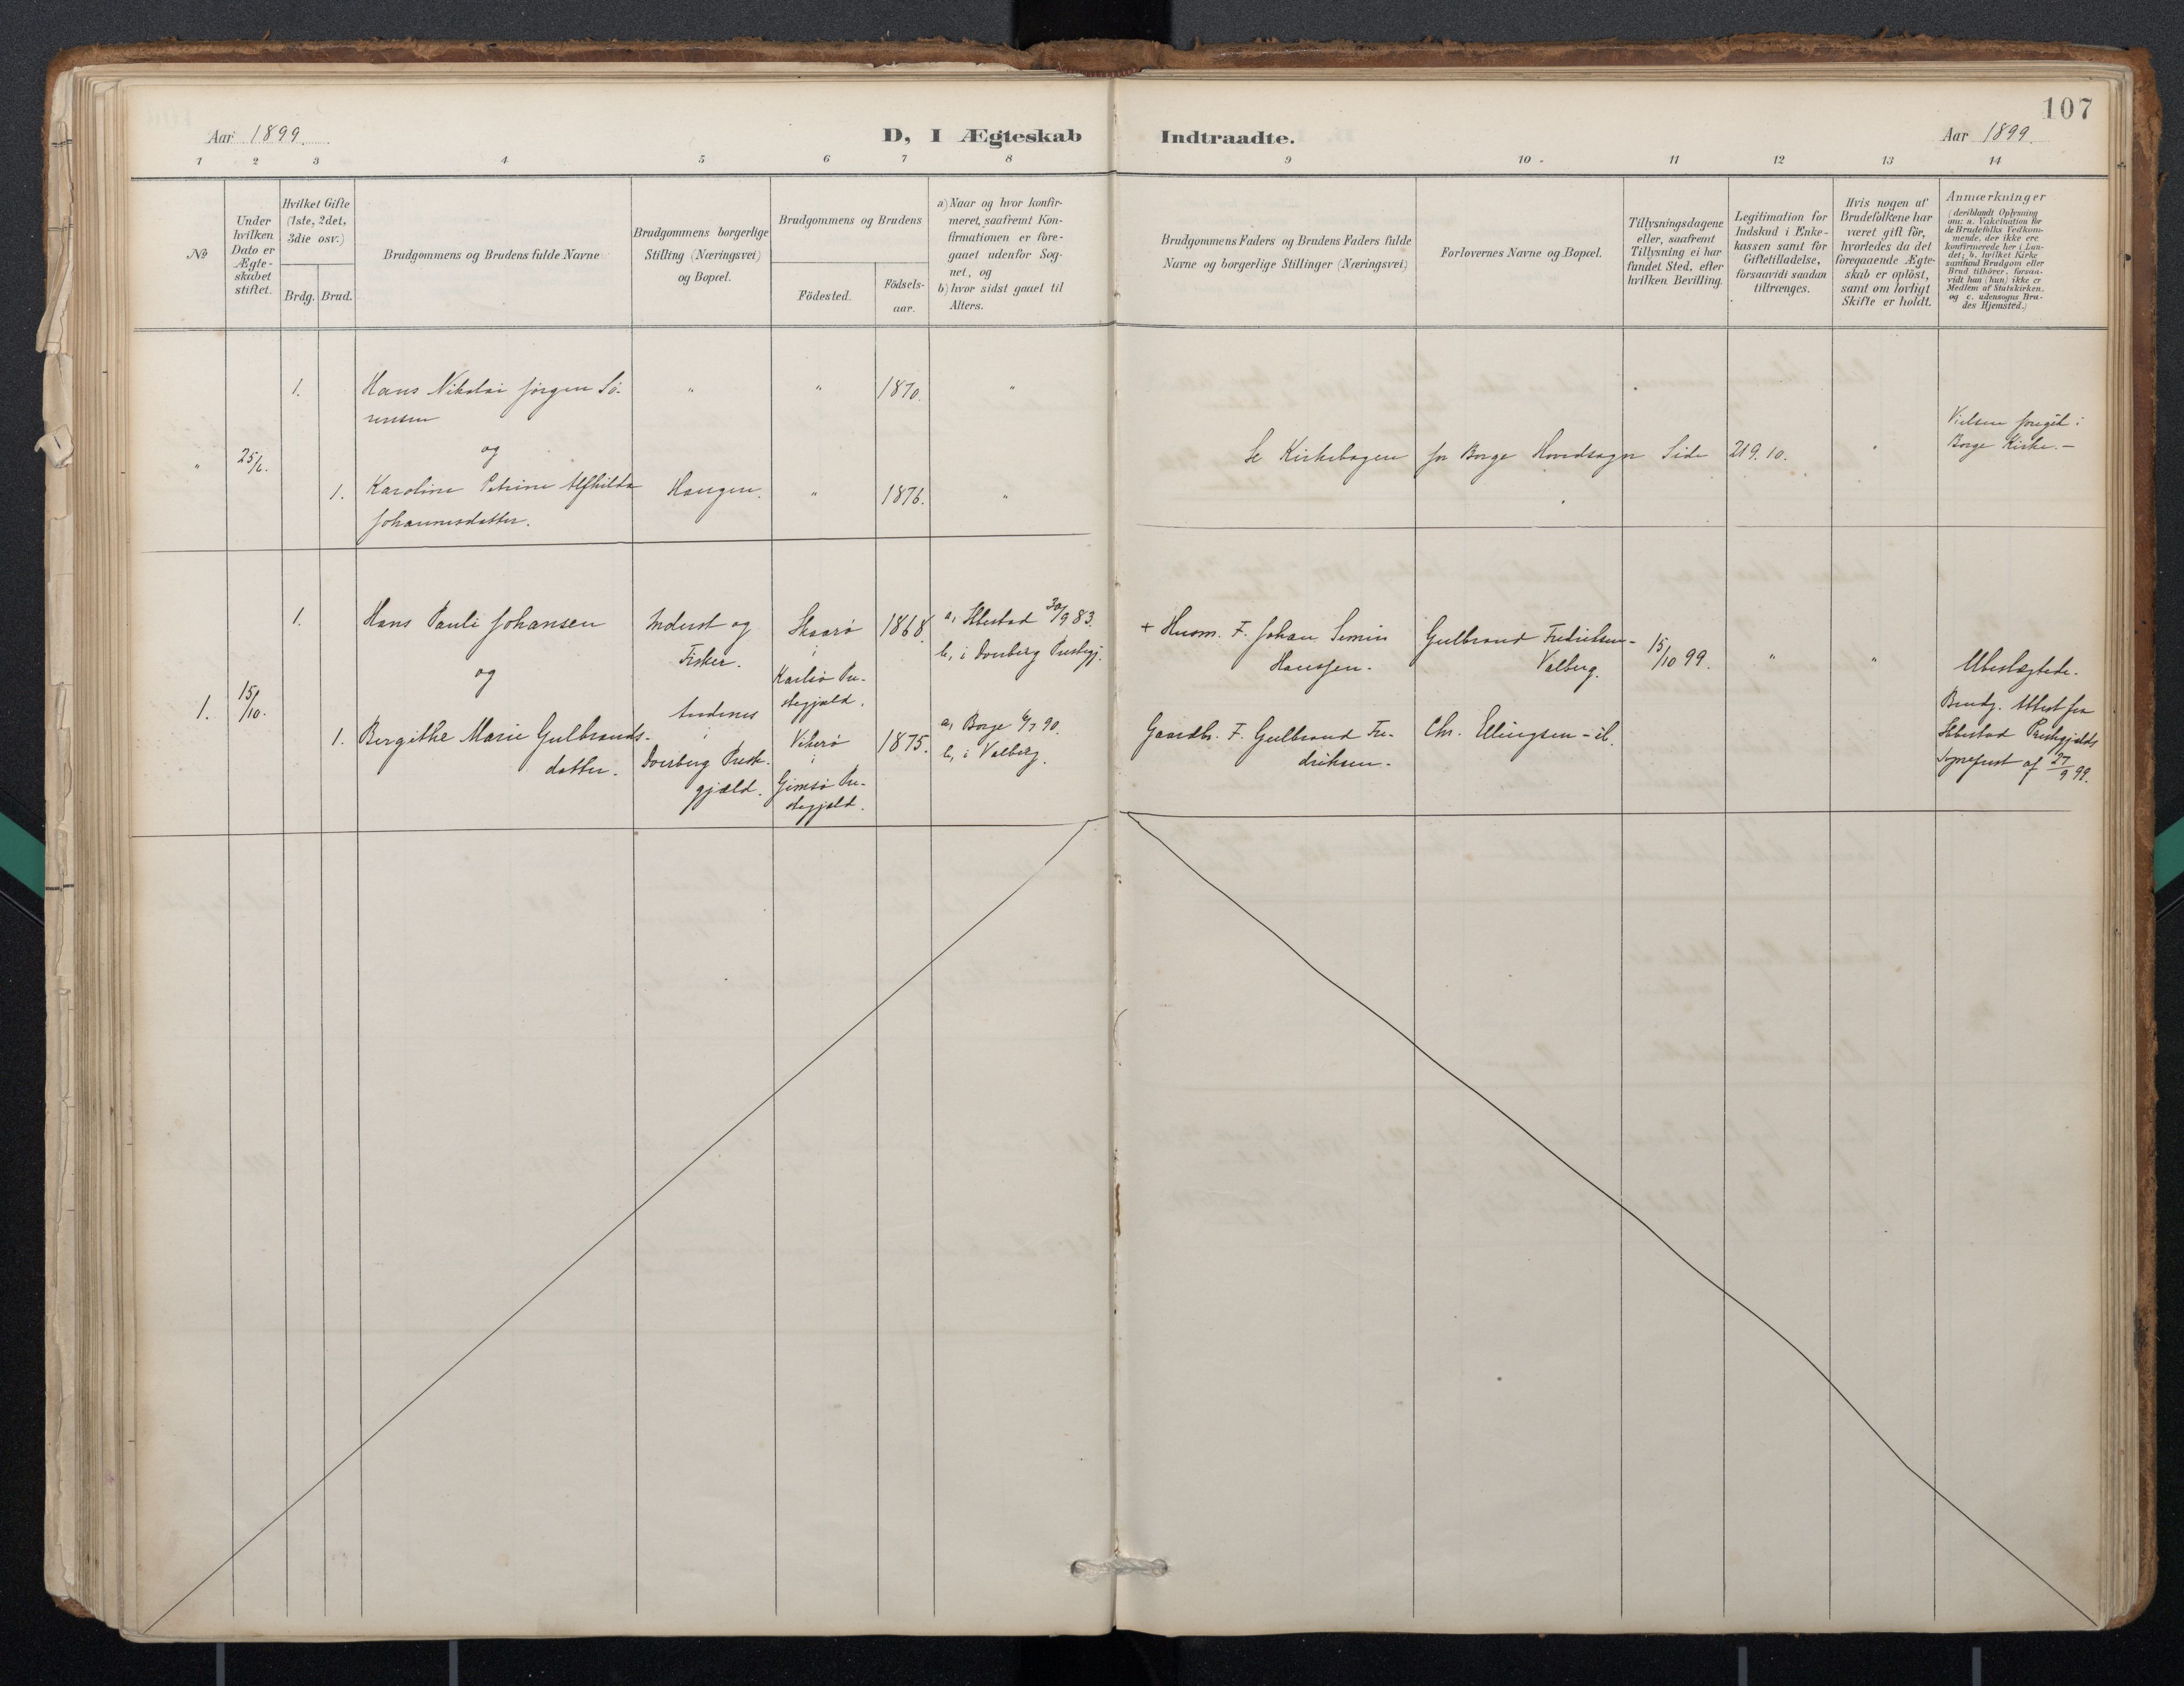 107
Aar 1899.
D, I Ægteskab Indtraadte.
Aar 1899.
1 2 3 4 5 6 7 8 9 10 11 12 13 14
No
Under
hvilken
Dato er
Ægte-
skabet
stiftet.
Hvilket Gifte
(1ste, 2det,
3die osv.)
Brdg. Brud.
Brudgommens og Brudens fulde Navne
Brudgommens borgerlige
Stilling (Næringsvei)
og Bopæl.
Brudgommens og Brudens
Födested.
Födsels-
aar.
a) Naar og hvor konfir-
meret, saafremt Kon-
firmationen er fore-
gaaet udenfor Sog-
net, og
b) hvor sidst gaaet til
Alters.
Brudgommens Faders og Brudens Faders fulde
Navne og borgerlige Stillinger (Næringsvei)
Forlovernes Navne og Bopæl.
Tillysningsdagene
eller, saafremt
Tillysning ei har
fundet Sted, efter
hvilken Bevilling.
Legitimation for
Indskud i Enke-
kassen samt for
Giftetilladelse,
forsaavidt saadan
tiltrænges.
Hvis nogen af
Brudefolkene har
været gift för,
hvorledes da det
foregaaende Ægte-
skab er oplöst,
samt om lovligt
Skifte er holdt.
Anmærkninger
(deriblandt Oplysning
om: a. Vakcination for
de Brudefolks Vedkom-
mende, der ikke ere
konfirmerede her i Lan-
det; b. hvilket Kirke-
samfund Brudgom eller
Brud tilhörer, forsaa-
vidt han (hun) ikke er
Medlem af Statskirken,
og c. udensogns Bru-
des Hjemsted.)
1. Hans Nikolai Jørgen Sö- " " 1870. "
rensen
og
" 25/6. Se Kirkebogen for Borge Hovedsogn Side 219.10. "
Vielsen foregik i
Borge Kirke.-
1. Karoline Petrine Alfhilda Haugen. " 1876. "
Johannesdatter.
1. Hans Pauli Johansen
og
1. 15/10.
1. Bergithe Marie Gulbrands-
datter.
Inderst og
Fisker.
Andenes
i
Dverberg Preste-
gjæld.
Skaarö
i
Karlsö Pre-
stegjæld.
Vikerö
i
Gimsö Pre-
stegjæld.
1868.
1875.
a, Ibestad 30/9 83.
b, i Dverberg Prestegj.
a, Borge 6/7 90.
b, i Valberg.
+ Husm. F. Johan Simin
Hanssen.
Gaardb. F. Gulbrand Fre-
driksen.
Gulbrand Fredriksen -
Valberg.
Chr. Ellingsen - ib.
15/10 99.
"
"
Ubeslægtede.
Brudg. Attest fra
Ibestad Prestegjælds
Sognepræst af 27/9 99.